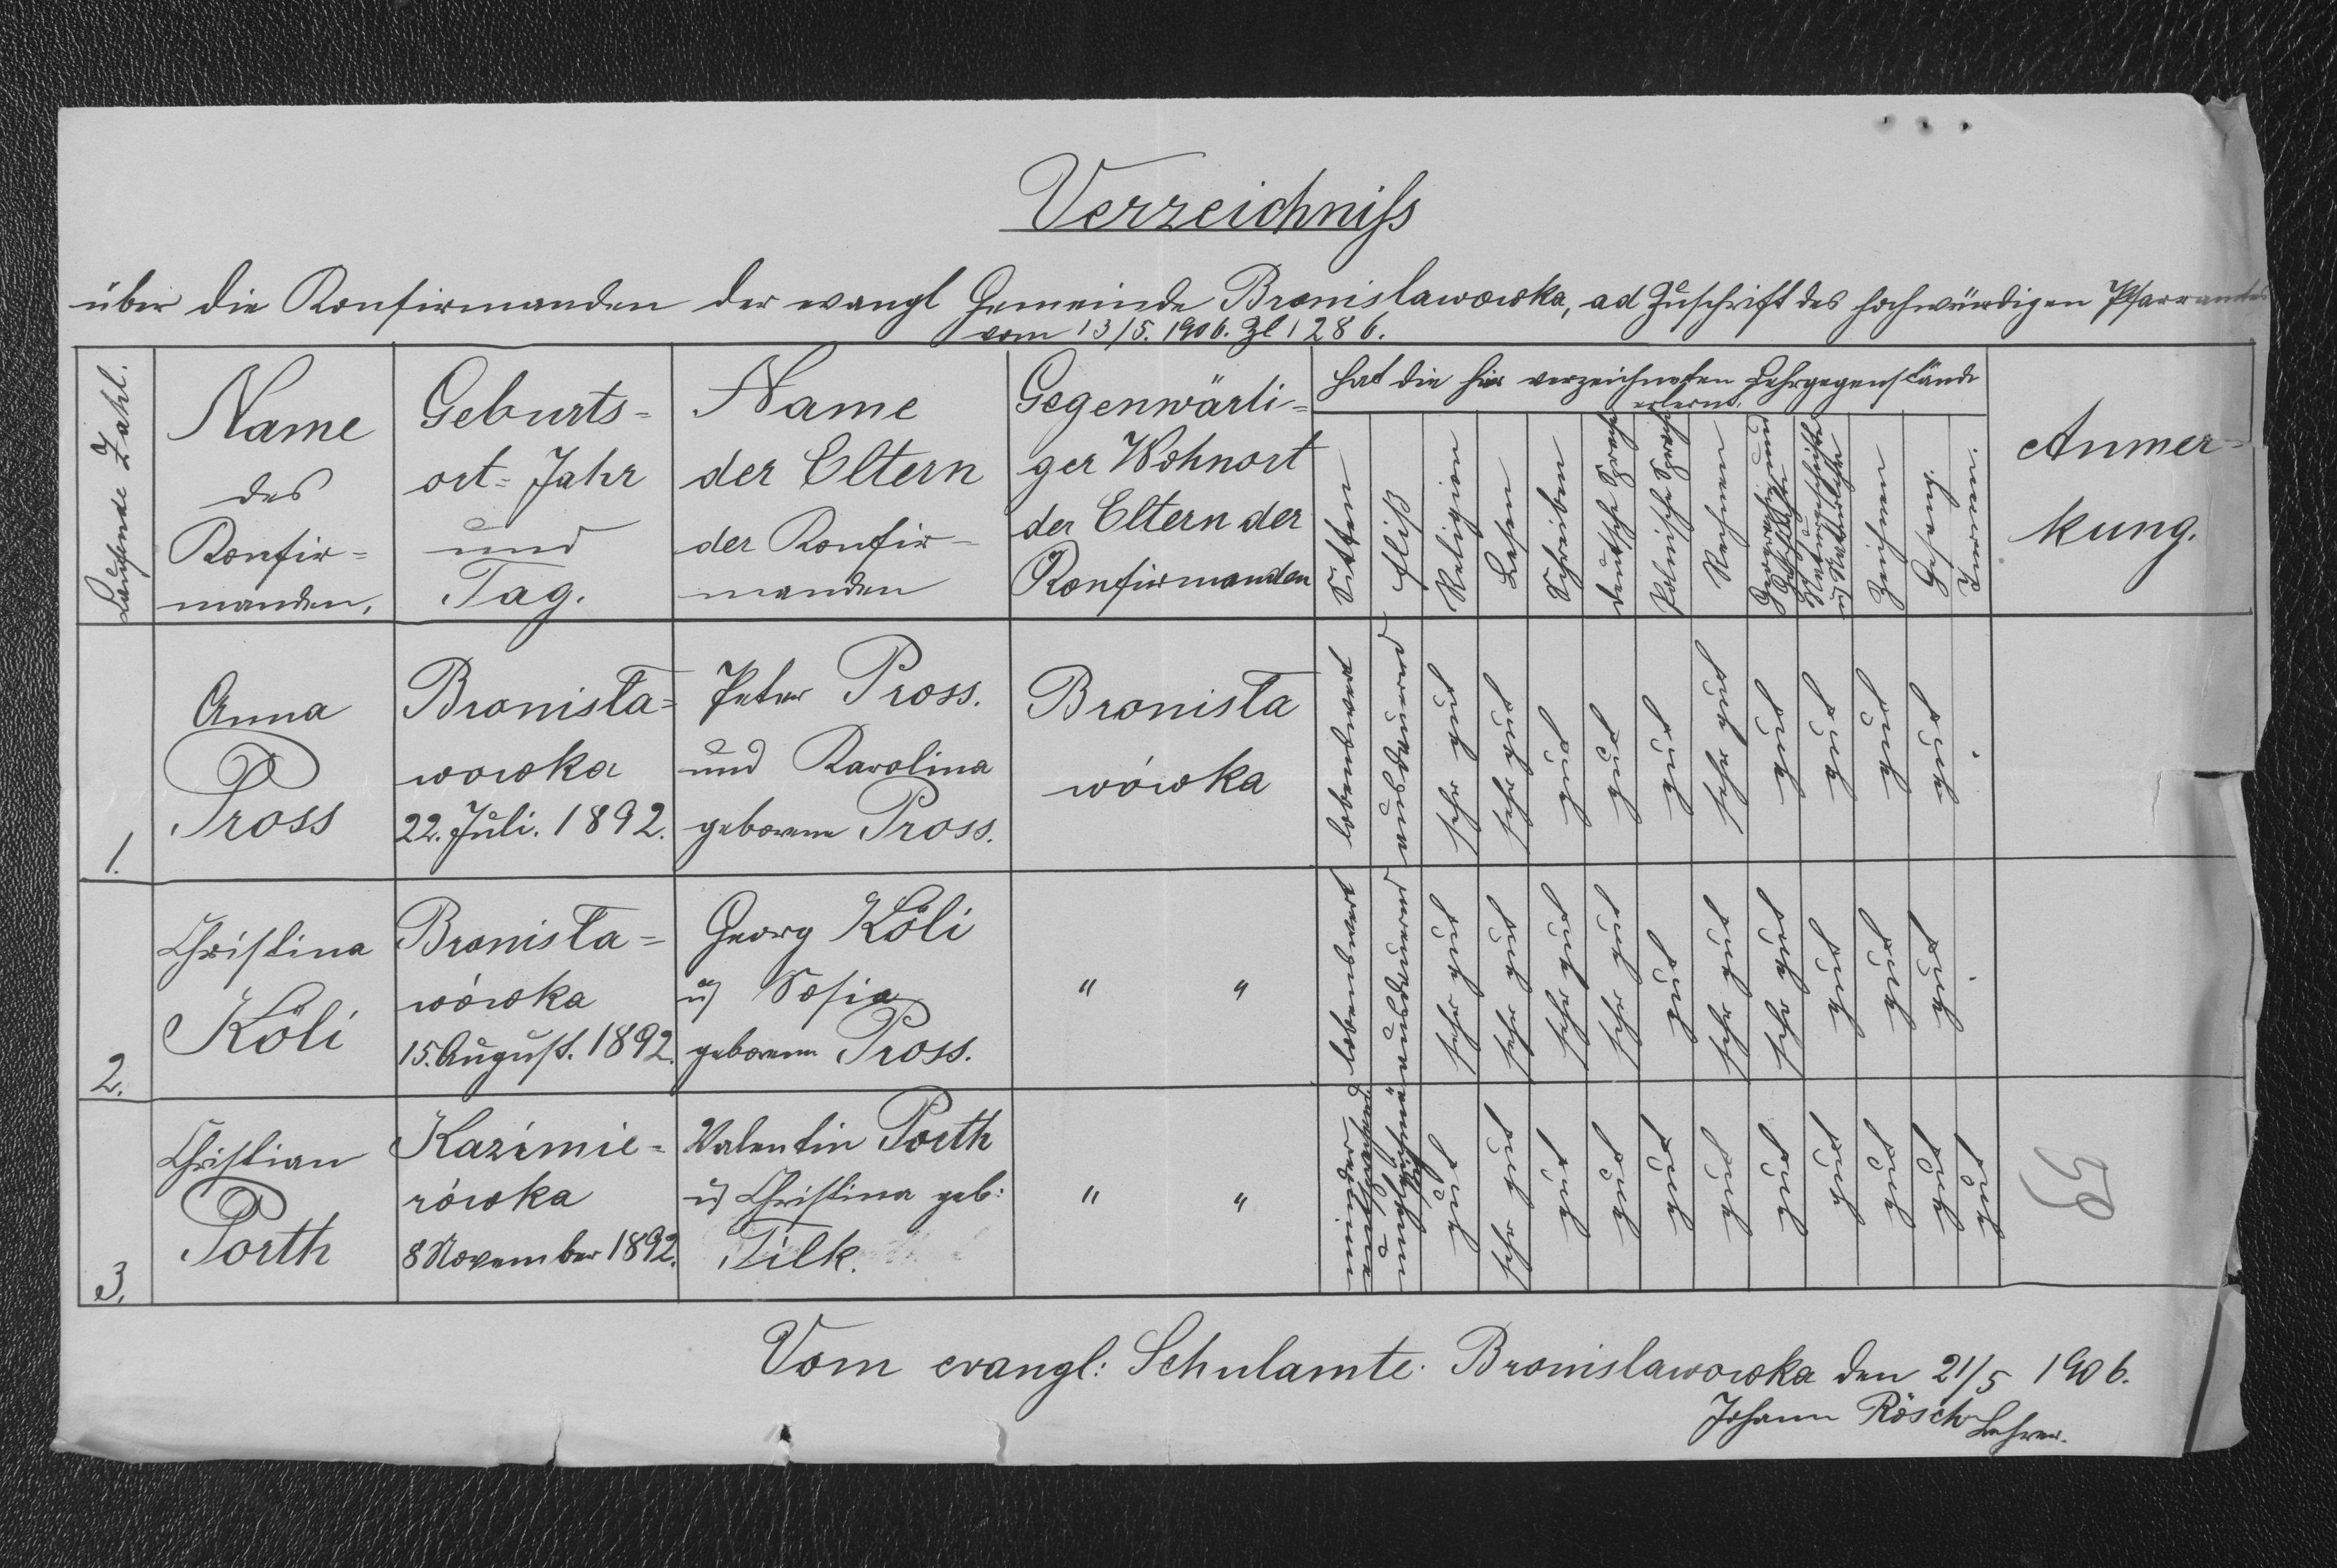 Verzeichniss
über die Konfirmanden der evangl Gemeinde Bronislawowka, ad Zuschrift des hochwürdigen Pfarramtes
vom 13/5. 1906. Zl 1286.
Laufende Zahl.
Name
des
Konfir=
manden.
Geburts=
ort= Jahr
und
Tag.
Name
der Eltern
der Konfir=
manden
Gegenwärti=
ger Wohnort
der Eltern der
Konfirmanden
Hat die hier verzeichneten Lehrgegenstände
erlernt.
Sitten
Fleiß
Religion
Lesen
Schreiben
Deutsche Sprache
Polnische Sprache
Rechnen
Geographie und
Geschichte
Naturgeschichte
u. Naturlehre
Zeichnen
Gesang.
Turnen.
Anmer=
kung.
1.
Anna
Pross
Bronisła=
wowka
22. Juli. 1892.
Peter Pross.
und Karolina
geborene Pross.
Bronisła
wówka
lobenswert
ausdauernd
sehr gut
sehr gut
gut
gut
gut
sehr gut
gut
gut
gut
gut
.
2.
Christina
Köli
Bronisła=
wówka
15. August. 1892.
Georg Köli
u. Sofia
geborene Pross.
" "
lobenswert
ausdauernd
sehr gut
sehr gut
sehr gut
sehr gut
gut
sehr gut
sehr gut
gut
gut
gut
.
3.
Christian
Porth
Kazimie=
rówka
8 November 1892.
Valentin Porth
u. Christina geb:
Filk.
" "
minder
entsprechend
ungleichmä
ßig
gut
sehr gut
gut
gut
gut
gut
gut
gut
gut
gut
gut
59
Vom evangl: Schulamte. Bronislawowka den 21/5 1906.
Johann Rösch Lehrer.